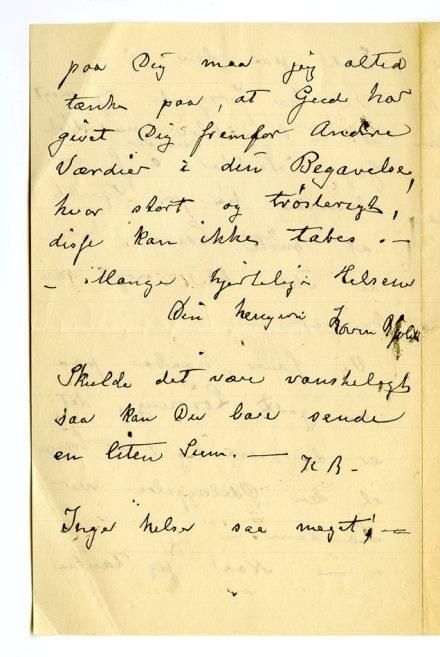 paa Dig maa jeg altid
tænke paa, at Gud har
givet Dig fremfor Andre
Værdier i din Begavelse,
hvor stort og trøsterigt,
disse kan ikke tabes. —
— Mange hjertelige Hilsener
Din hengivne Karen
Skulde det være vanskeligt
saa kan Du bare sende
en liten Sum. —
K B —
Inger hilser saa meget! —